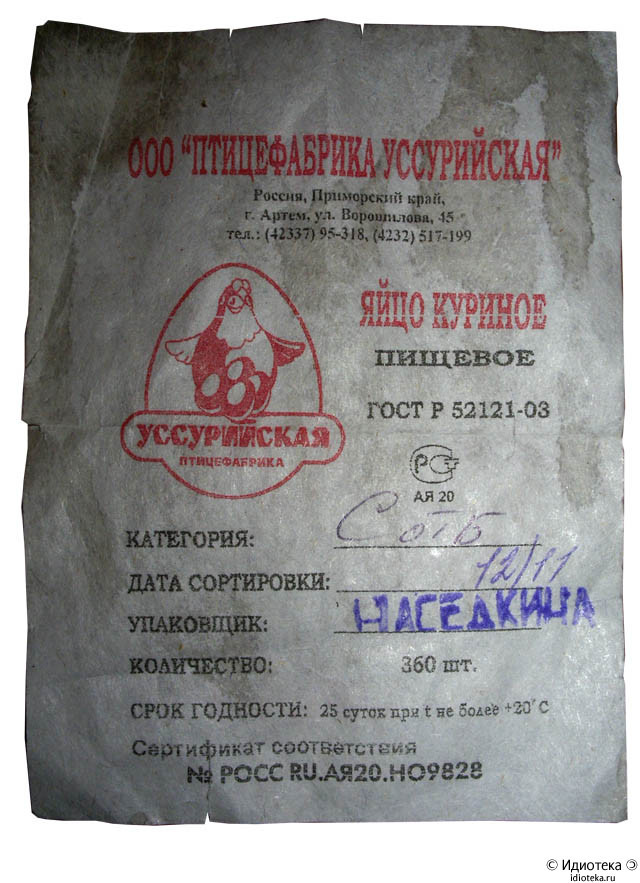 ООО "ПТИЦЕФАБРИКА УССУРИЙСКАЯ"
Россия, Приморский край,
г. Артем, ул. Ворошилова, 45
тел.: (42337) 95-318, (4232) 517-199
ЯЙЦО КУРИНОЕ
ПИЩЕВОЕ
ГОСТ Р 52121-03
АЯ 20
УССУРИЙСКАЯ
ПТИЦЕФАБРИКА
КАТЕГОРИЯ: С отб
ДАТА СОРТИРОВКИ: 12/11
УПАКОВЩИК: НАСЕДКИНА
КОЛИЧЕСТВО: 360 шт.
СРОК ГОДНОСТИ: 25 суток при t не более +20°С
Сертификат соответствия
№ РОСС RU.АЯ20.НО9828
© Идиотека
idioteka.ru